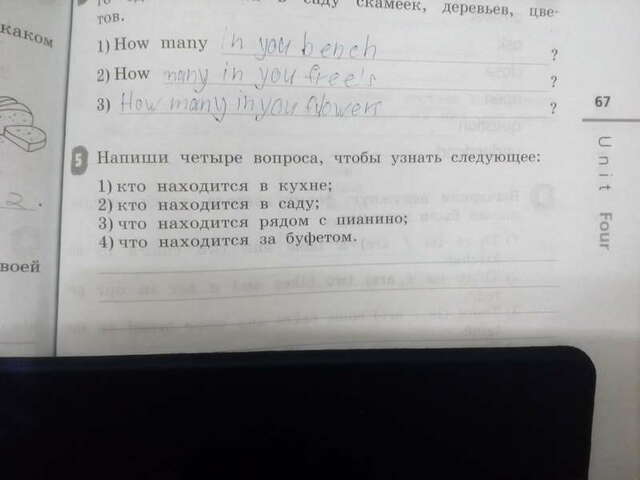 в саду скамеек, деревьев, цве-
тов.
каком
1) How many in you bench ?
2) How many in you free's ?
3) How many in you flowers ?
2.
воей
67
Unit Four
5 Напиши четыре вопроса, чтобы узнать следующее:
1) кто находится в кухне;
2) кто находится в саду;
3) что находится рядом с пианино;
4) что находится за буфетом.